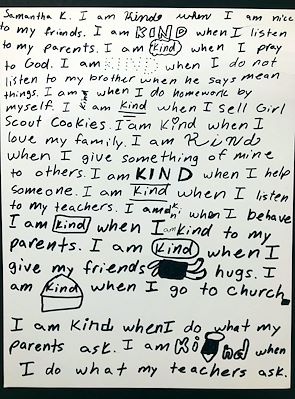 Samantha K. I am Kind when I am nice
to my friends. I am KIND when I listen
to my parents. I am kind when I pray
to God. I am KIND when I do not
listen to my brother when he says mean
things. I am when I do homework by
myself. I am kind when I sell Girl
Scout Cookies. I am Kind when I
love my family. I am Kind
when I give something of mine
to others. I am KIND when I help
someone. I am Kind when I listen
to my teachers. I am when I behave
I am kind when I am kind to my
parents. I am kind when I
give my friends hugs. I
am kind when I go to church.
I am Kind when I do what my
parents ask. I am Kind when
I do what my teachers ask.